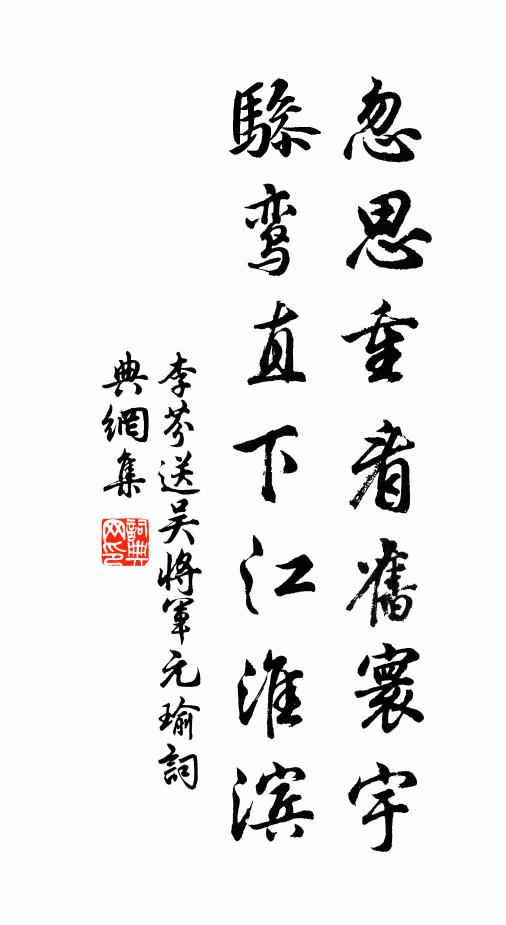 忽思重看舊寰宇
驂鸞直下江淮滨
李芬送吴将軍元瑜詞
典網集
詞典网印